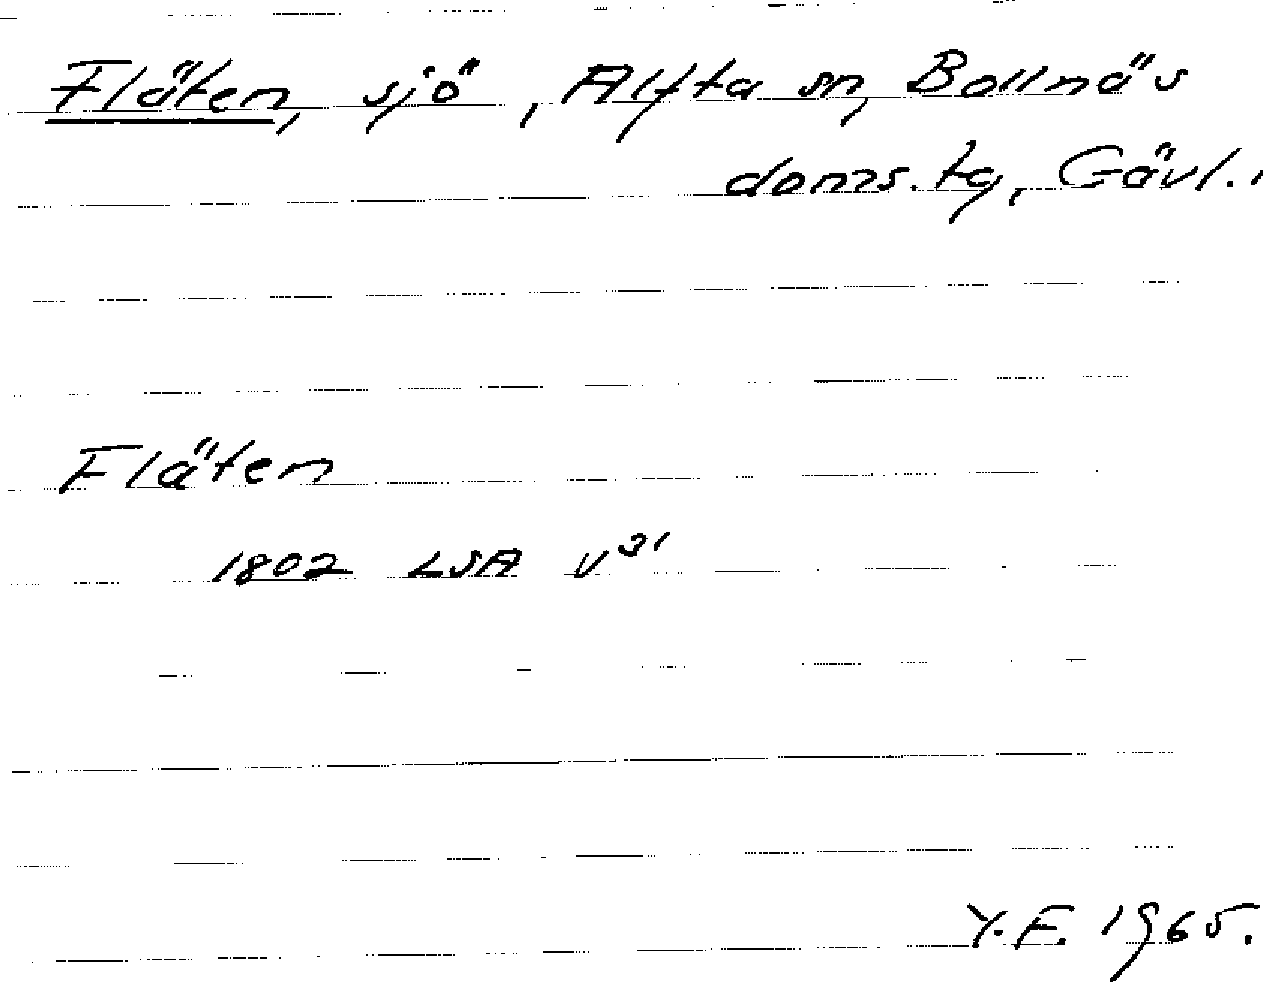 Fläten, sjö, Alfta sn, Bollnäs
doms.tg, Gävl.
Fläten
1802 LSA V³¹
Y.F. 1965.